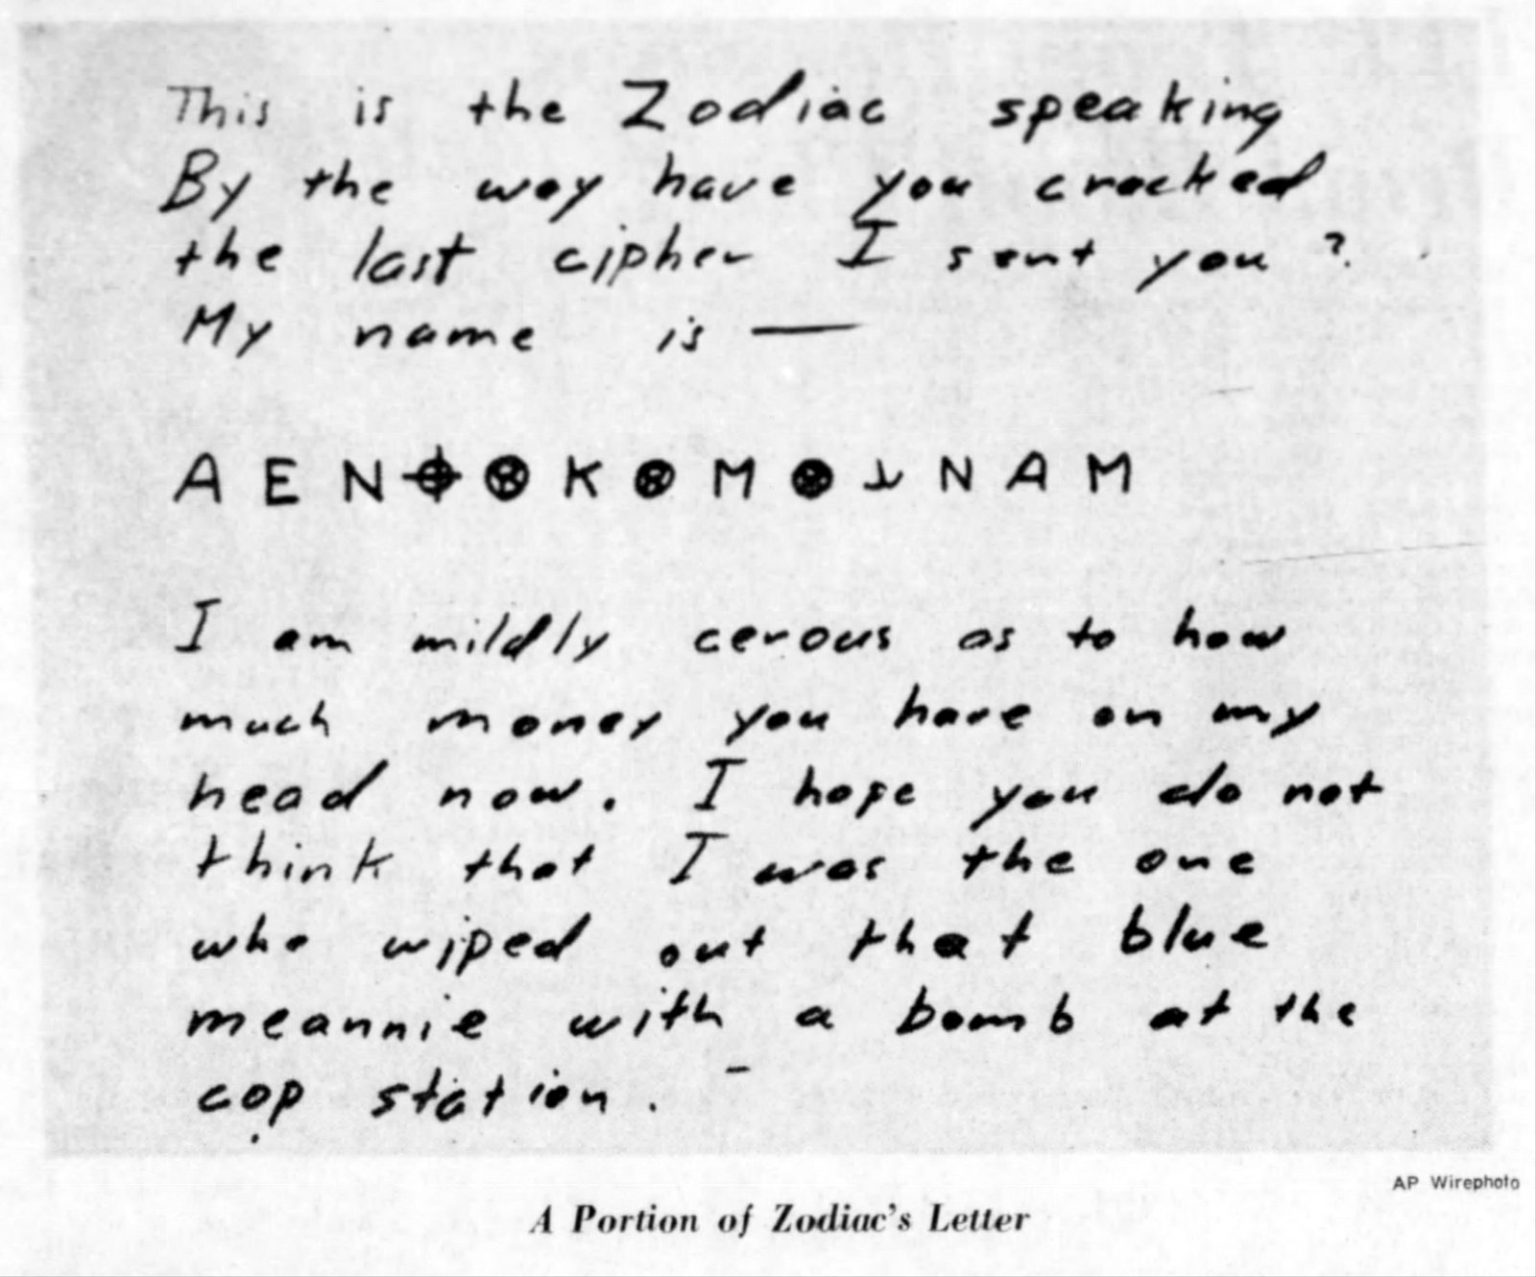 This is the Zodiac speaking
By the way have you cracked
the last cipher I sent you ?
My name is —
A E N ⌖ ⊗ K ⊗ M ⊗ ⅄ N A M
I am mildly cerous as to how
much money you have on my
head now. I hope you do not
think that I was the one
who wiped out that blue
meannie with a bomb at the
cop station.
AP Wirephoto
A Portion of Zodiac's Letter